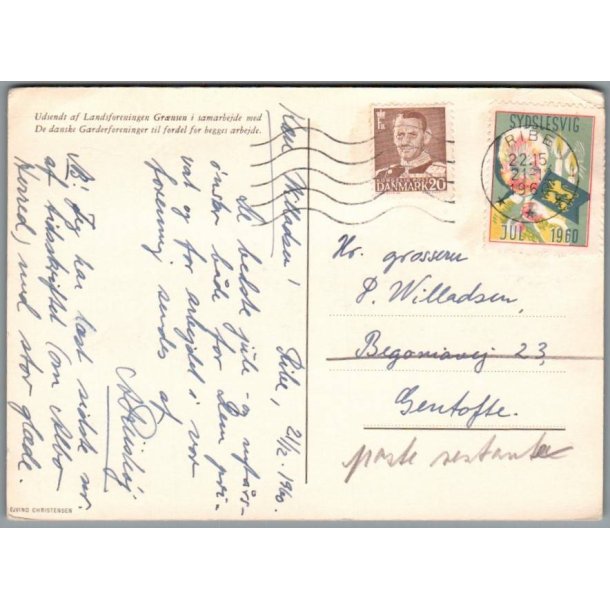 Udsendt af Landsforeningen Grænsen i samarbejde med
De danske Garderforeninger til fordel for begges arbejde.
Ribe, 21/12. 1960.
Kære Willadsen!
De bedste jule- og nytårs-
ønsker både for Dem pri-
vat og for arbejdet i vor
forening sendes af
NB! Jeg har læst sidste nr.
af tidsskriftet (om
med stor glæde.
EJVIND CHRISTENSEN
DANMARK 20
SYDSLESVIG
JUL 1960
RIBE
22.15
21.12
196
Hr. grosserer
P. Willadsen,
Begoniavej 23,
Gentofte.
poste restante